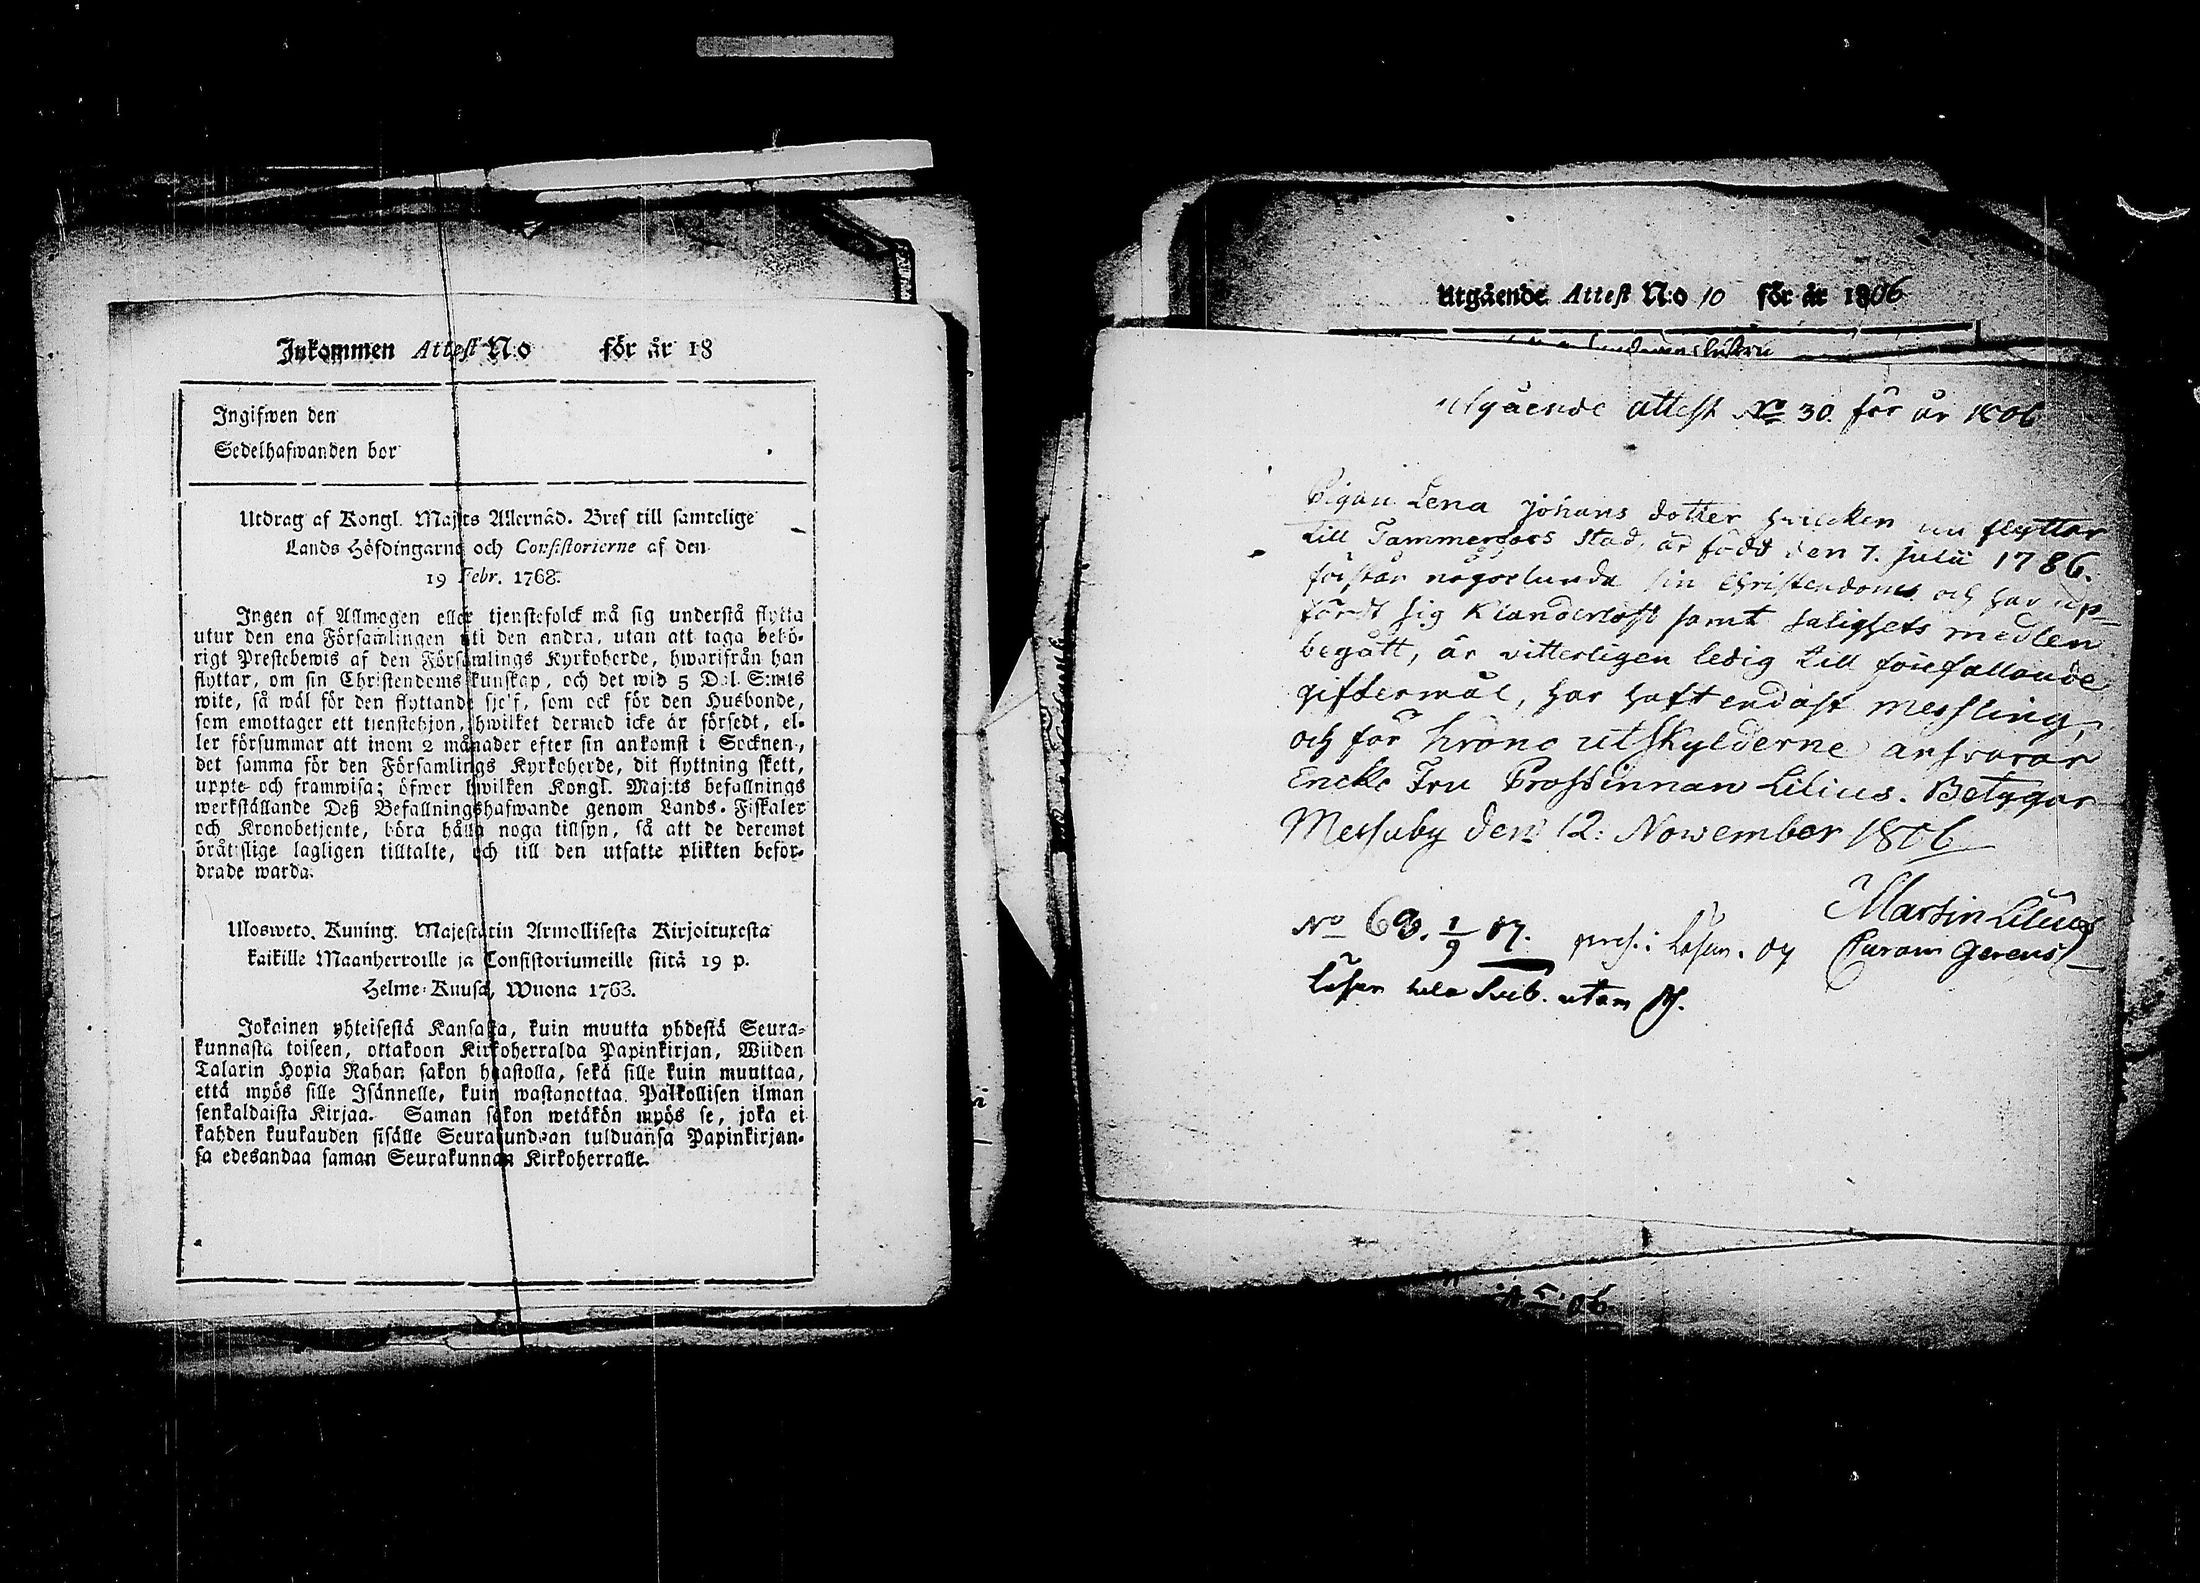 Inkommen Attest N:o för år 18
Ingifwen den
Sedelhafwanden bor
Utdrag af Kongl. Maj:ts Allernåd. Bref till samtelige
Lands Höfdingarne och Consistorierne af den
19 Febr. 1768.
Ingen af Allmogen eller tjenstefolck må sig understå flytta
utur den ena Församlingen uti den andra, utan att taga behö-
rigt Prestebewis af den Församlings Kyrkoherde, hwarifrån han
flyttar, om sin Christendoms kunskap, och det wid 5 Dal. S:mts
wite, så wäl för den flyttande sjelf, som ock för den Husbonde,
som emottager ett tjenstehjon, hwilket dermed icke är försedt, el-
ler försummar att inom 2 månader efter sin ankomst i Socknen,
det samma för den Församlings Kyrkoherde, dit flyttning skett,
uppte och framwisa; öfwer hwilken Kongl. Maj:ts befallnings
werkställande Deß Befallningshafwande genom Lands-Fiskaler
och Kronobetjente, böra hålla noga tillsyn, så att de deremot
bråtslige lagligen tilltalte, och till den utsatte plikten befor-
drade warda.
Ulosweto, Kuning. Majestätin Armollisesta Kirjoituxesta
kaikille Maanherroille ja Consistoriumeille siitä 19 p.
Helme-Kuusa, Wuona 1763.
Jokainen yhteisestä Kansasta, kuin muutta yhdestä Seura-
kunnasta toiseen, ottakoon Kirkoherralda Papinkirjan, Wiiden
Talarin Hopia Rahan sakon haastolla, sekä sille kuin muuttaa,
että myös sille Isännelle, kuin wastanottaa Palkollisen ilman
senkaldaista Kirjaa. Saman sakon wetäkön myös se, joka ei
kahden kuukauden sisälle Seurakundaan tulduansa Papinkirjan-
sa edesandaa saman Seurakunnan Kirkoherralle.
Utgående Attest N:o 10 för år 1806
utgående attest No 30. för år 1806
Pigan Lena Johans dotter hvilcken nu flyttar
till Tammerfors Stad, är född den 7. Julii 1786.
förstår någorlunda sin Christendoms och har up-
fördt sig Klanderlöst samt Salighets medlen
begått, är vitterligen ledig till förefallande
giftermål, har haft endast messling,
och för krono utskylderne ansvarar
Encke Fru Prostinnan Lilius. Betygar
Messuby den 12: November 1806
Martin Lilius
Curam Gerens
No 69. 1/9 07.